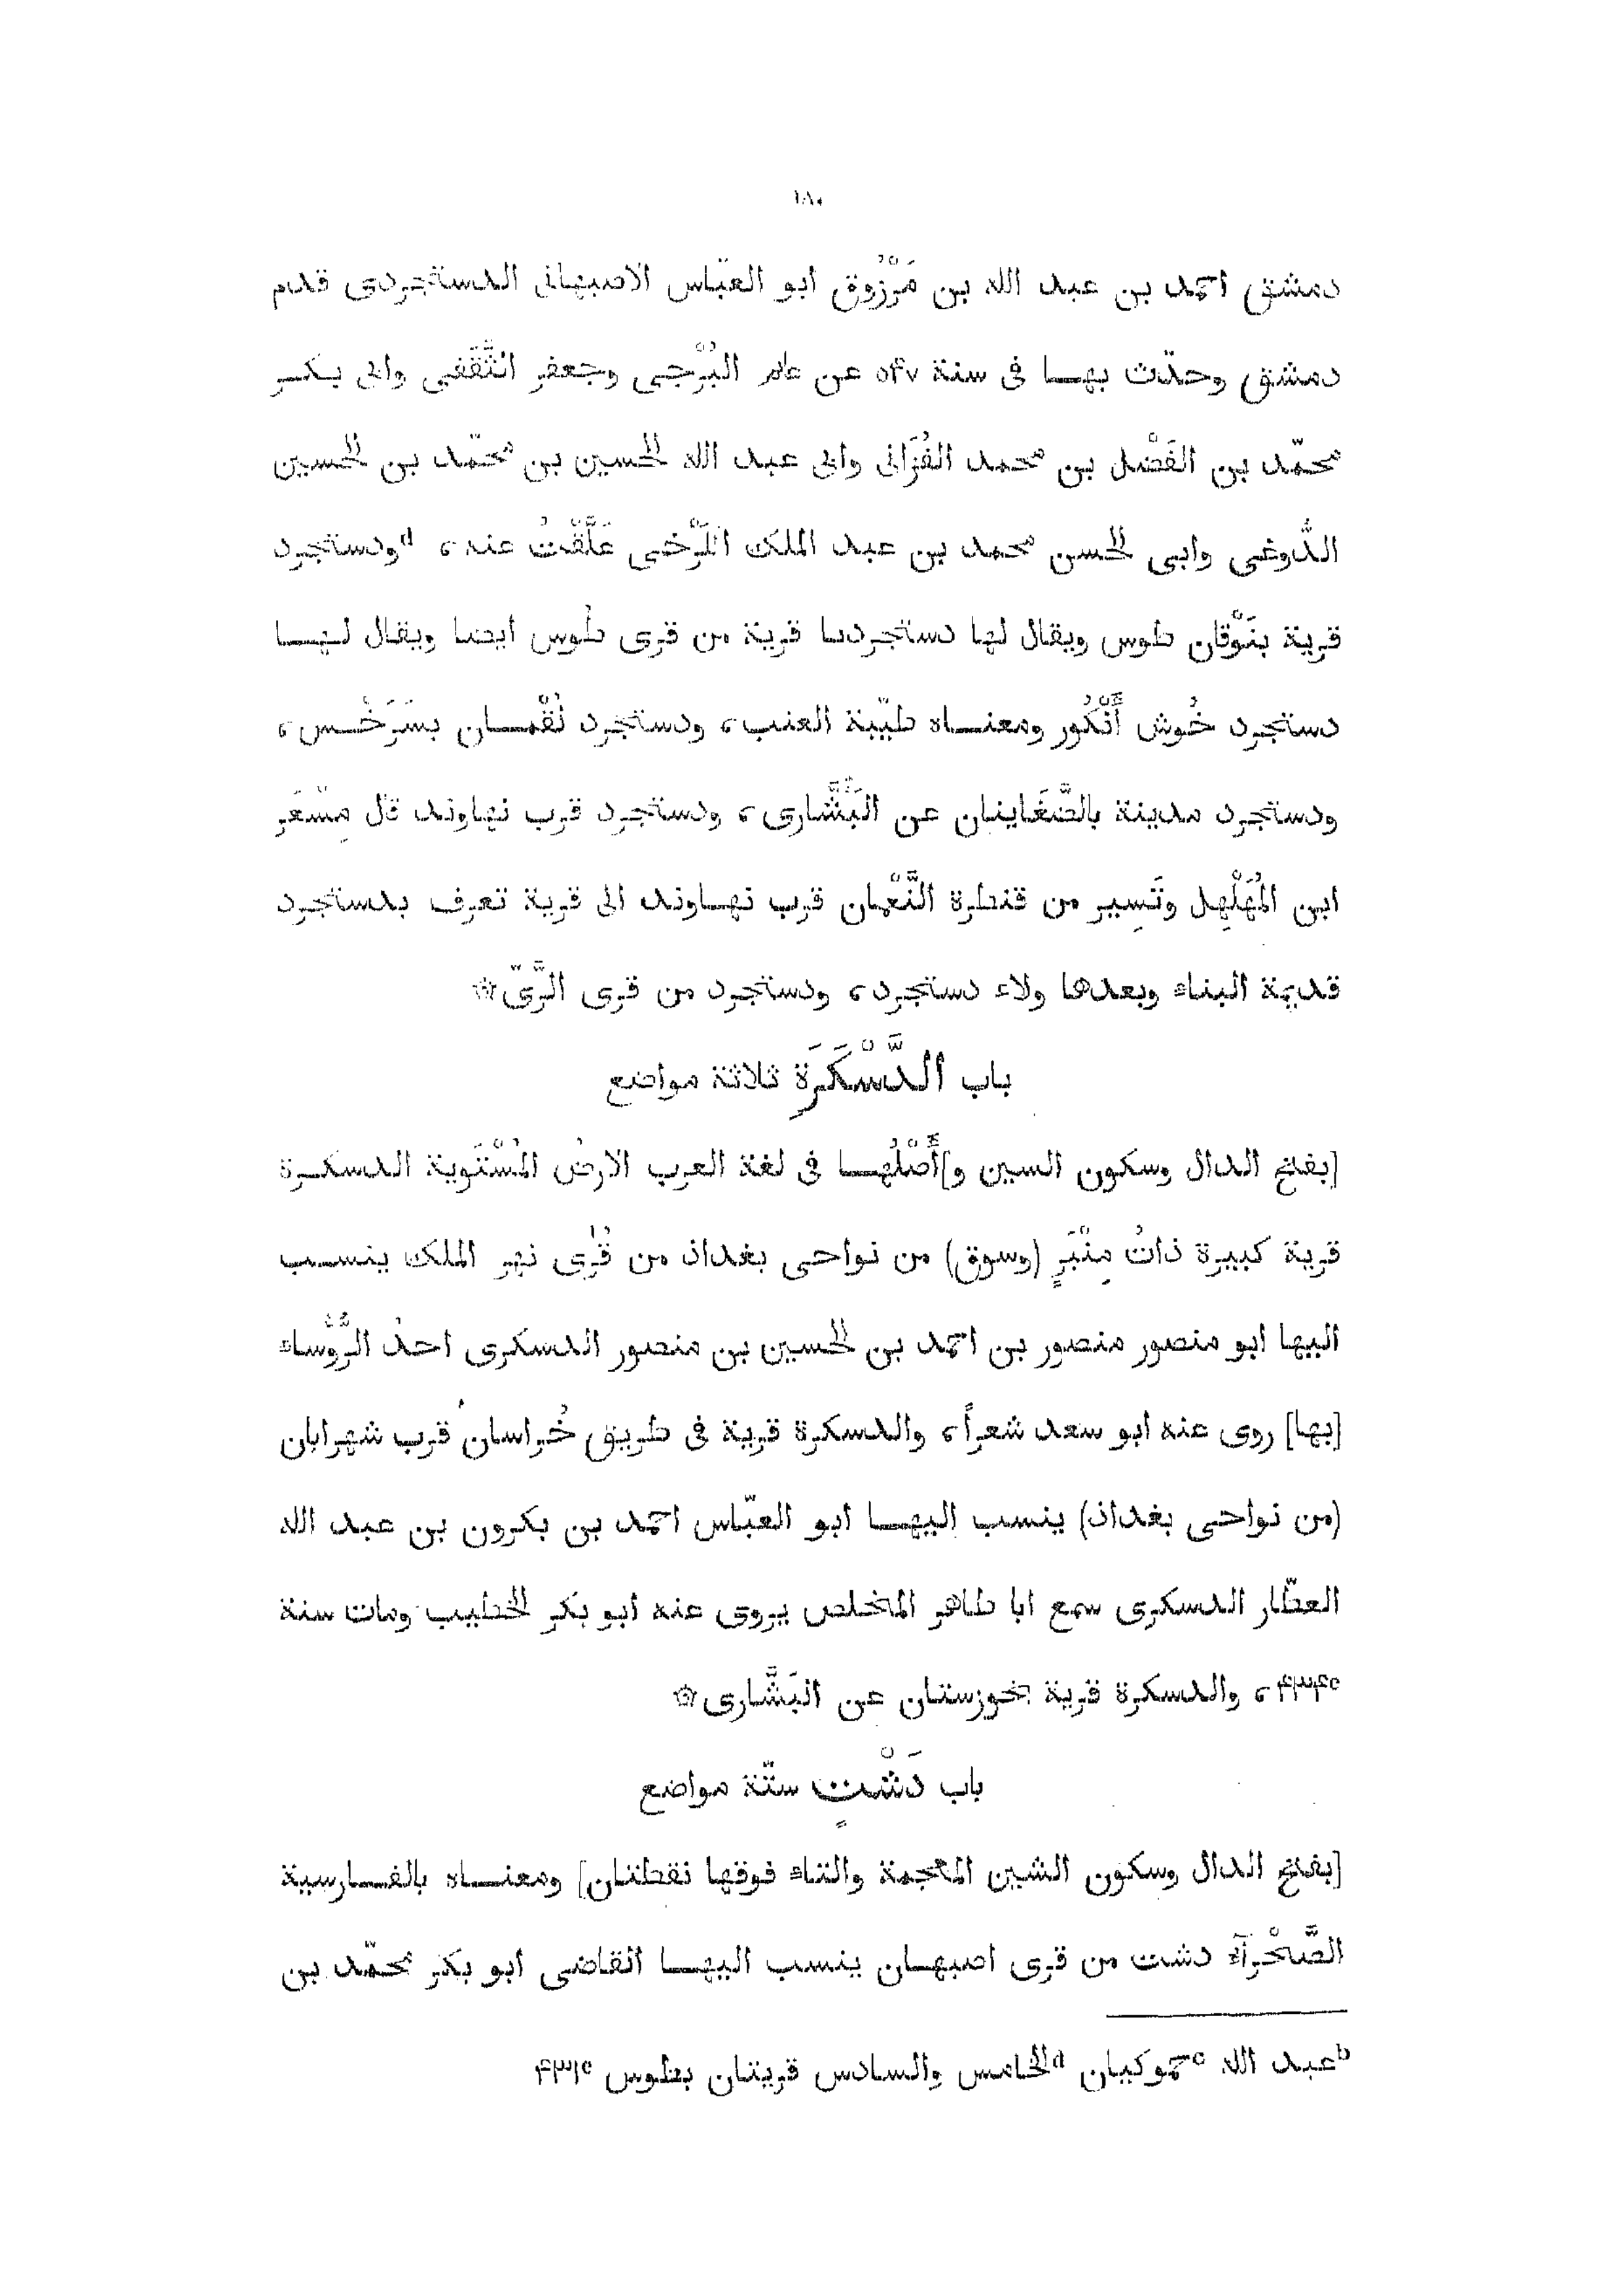 ١٨٠
دمشق احمد بن عبد الله بن مَرْزُوق ابو العبّاس الاصبهانى الدستجردى قدم
دمشق وحدّث بهـا فى سنة ٥٤٧ عن غانم البُرْجى وجعفر الثَّقَفى وابى بكـر
محمّد بن الفَضْل بن محمد القُزَانى وابى عبد الله الحسين بن محمّد بن الحسين
الدُّوغى وابى الحسن محمد بن عبد الملك الكَرْخى عَلَّقْتُ عنه، d ودستجرد
قرية بنَوْقان طوس ويقال لها دستجردىا قرية من قرى طُوس ايضا ويقال لـهـا
دستجرد خُوش أَنْكُور ومعنـاه طيّبة العنب، ودستجرد لُقْمـان بسَرَخْـس،
ودستجرد مدينة بالصَّغَاينان عن البَشَّارى، ودستجرد قرب نهاوند قال مِسْعَر
ابن المُهَلْهِل وتَسِير من قنطرة النَّعْمان قرب نهـاوند الى قرية تعرف بدستجرد
قديمة البناء وبعدها ولاء دستجرد، ودستجرد من قرى الرَّىّ ۞
باب الدَّسْكَرَة ثلاثة مواضع
[بفتح الدال وسكون السين و]أَصْلُهـا فى لغة العرب الارضُ المُسْتَوية الدسكـرة
قرية كبيرة ذاتُ مِنْبَرٍ (وسوق) من نواحى بغداذ من قُرَى نهر الملك ينسـب
اليها ابو منصور منصور بن احمد بن الحسين بن منصور الدسكرى احدُ الرُّؤَساء
[بها] روى عنه ابو سعد شعراً، والدسكرة قرية فى طريق خُراسان قرب شهرابان
(من نواحى بغداذ) ينسب اليهـا ابو العبّاس احمد بن بكرون بن عبد الله
العطّار الدسكرى سمع ابا طاهر المخلص يروى عنه ابو بكر الخطيب ومات سنة
e ۴۳۴، والدسكرة قرية بخوزستان عن البَشَّارى ۞
باب دَشْتٍ ستّة مواضع
[بفتح الدال وسكون الشين المعجمة والتاء فوقها نقطتان] ومعنـاه بالفـارسية
الصَّحْرآء دشت من قرى اصبهـان ينسب اليهـا القاضى ابو بكر محمّد بن
b عبد الله c حموكيان d الخامس والسادس قريتان بطوس e ۴۳۱